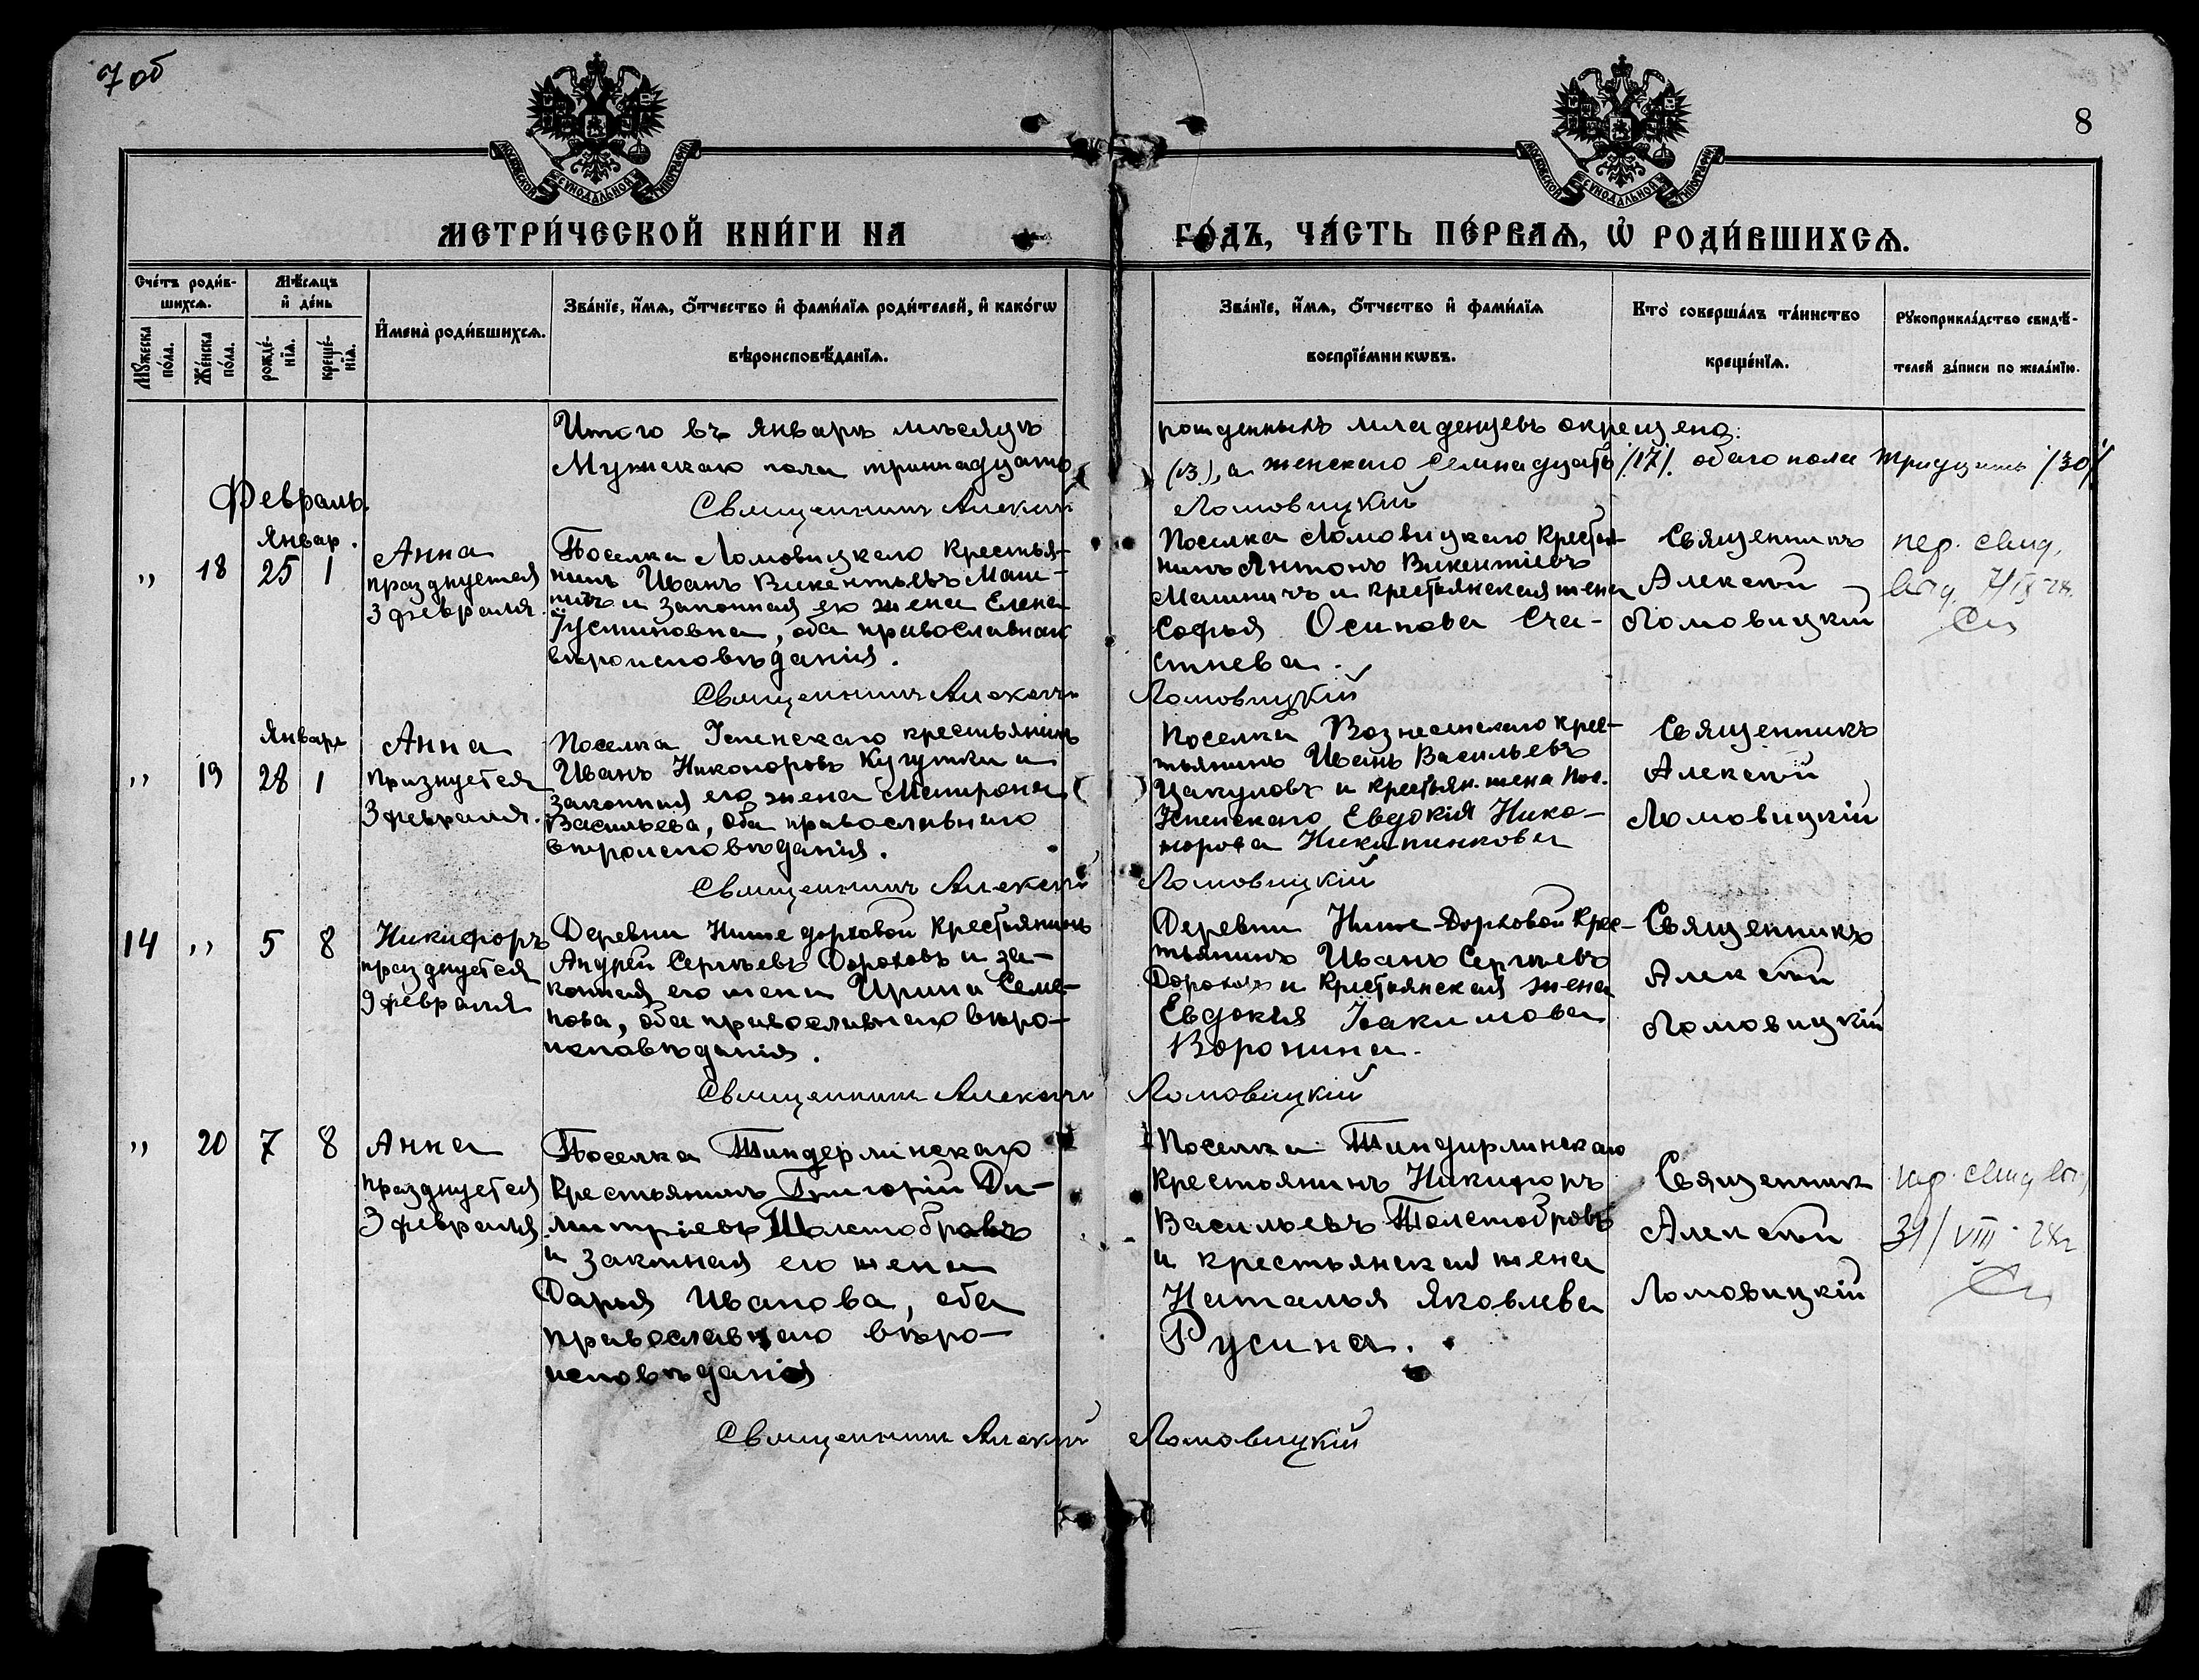 7 об
8
МОСКОВСКОЙ СѴНОДАЛЬНОЙ ТИПОГРАФІИ
МОСКОВСКОЙ СѴНОДАЛЬНОЙ ТИПОГРАФІИ
МЕТРИ́ЧЕСКОЙ КНИ́ГИ НА ГО́ДЪ, ЧА́СТЬ ПЕ́РВАѦ, Ѡ҆ РОДИ́ВШИХСѦ.
Сче́тъ роди́в-
шихсѧ.
Мꙋжеска по́ла.
Же́нска по́ла.
Мѣ́сѧцъ
и҆ де́нь
рожде́-нїѧ.
креще́-нїѧ.
И҆мена̀ роди́вшихсѧ.
Зва́нїе, и҆́мѧ, ѻ҆́тчество и҆ фами́лїѧ роди́телей, и҆ како́гѡ
вѣроисповѣ́данїѧ.
Зва́нїе, и҆́мѧ, ѻ҆́тчество и҆ фами́лїѧ
воспрїе́мникѡвъ.
Кто̀ соверша́лъ та́инство
креще́нїѧ.
Рꙋкоприкла́дство свидѣ́-
телей за́писи по жела́нїю.
Итого въ январѣ мѣсяцѣ рожденныхъ младенцевъ окрещено:
Мужескаго пола тринадцать (13), а женскаго семнадцать /17/. обаго пола тридцать /30/
Священникъ Алексѣй Ломовицкій
Февраль.
Январ.
" 18 25 1
Анна
празднуется
3 февраля.
Поселка Ломовицкаго крестья-
нинъ Иванъ Викентьевъ Маш-
и законная его жена Елена
Іустиновна, оба православнаго
вѣроисповѣданія.
Поселка Ломовицкаго крестья-
нинъ Антонъ Викентіевъ
и крестьянская жена
Софья Осипова Сча-
стнева.
Священникъ
Алексѣй
Ломовицкій
пер. свид.
выд. 7/IX 24.
Священникъ Алексѣй Ломовицкій
Январь
" 19 28 1
Анна
Празнуется
3 февраля.
Поселка Успенскаго крестьянинъ
Иванъ Никоноровъ и
законная его жена Матрона
Васильева, оба православнаго
вѣроисповѣданія.
Поселка Вознесенскаго крес-
тьянинъ Иванъ Васильевъ
Цакуловъ и крестьян. жена пос.
Успенскаго Евдокія Нико-
норова
Священникъ
Алексѣй
Ломовицкій
Священникъ Алексѣй Ломовицкій
14 " 5 8
Никифоръ
празднуется
9 февраля
Деревни Ниже дорховой крестьянинъ
Андрей Сергѣевъ Дороховъ и за-
конная его жена Ирина Семе-
нова, оба православнаго вѣро-
исповѣданія.
Деревни Ниже-Дорховой крес-
тьянинъ Иванъ Сергѣевъ
Дороховъ и крестьянская жена
Евдокія Іоакимова
Воронина.
Священникъ
Алексѣй
Ломовицкій
Священникъ Алексѣй Ломовицкій
" 20 7 8
Анна
празднуется
3 февраля
Поселка Тиндерлинскаго
крестьянинъ Григорій Ди-
митріевъ Толстобровъ
и законная его жена
Дарья Иванова, оба
православнаго вѣро-
исповѣданія
Поселка Тиндирлинскаго
крестьянинъ Никифоръ
Васильевъ Толстобровъ
и крестьянская жена
Наталья Яковлева
Русина.
Священникъ
Алексѣй
Ломовицкій
пер. свид выд
31/VIII 24г
Священникъ Алексѣй Ломовицкій